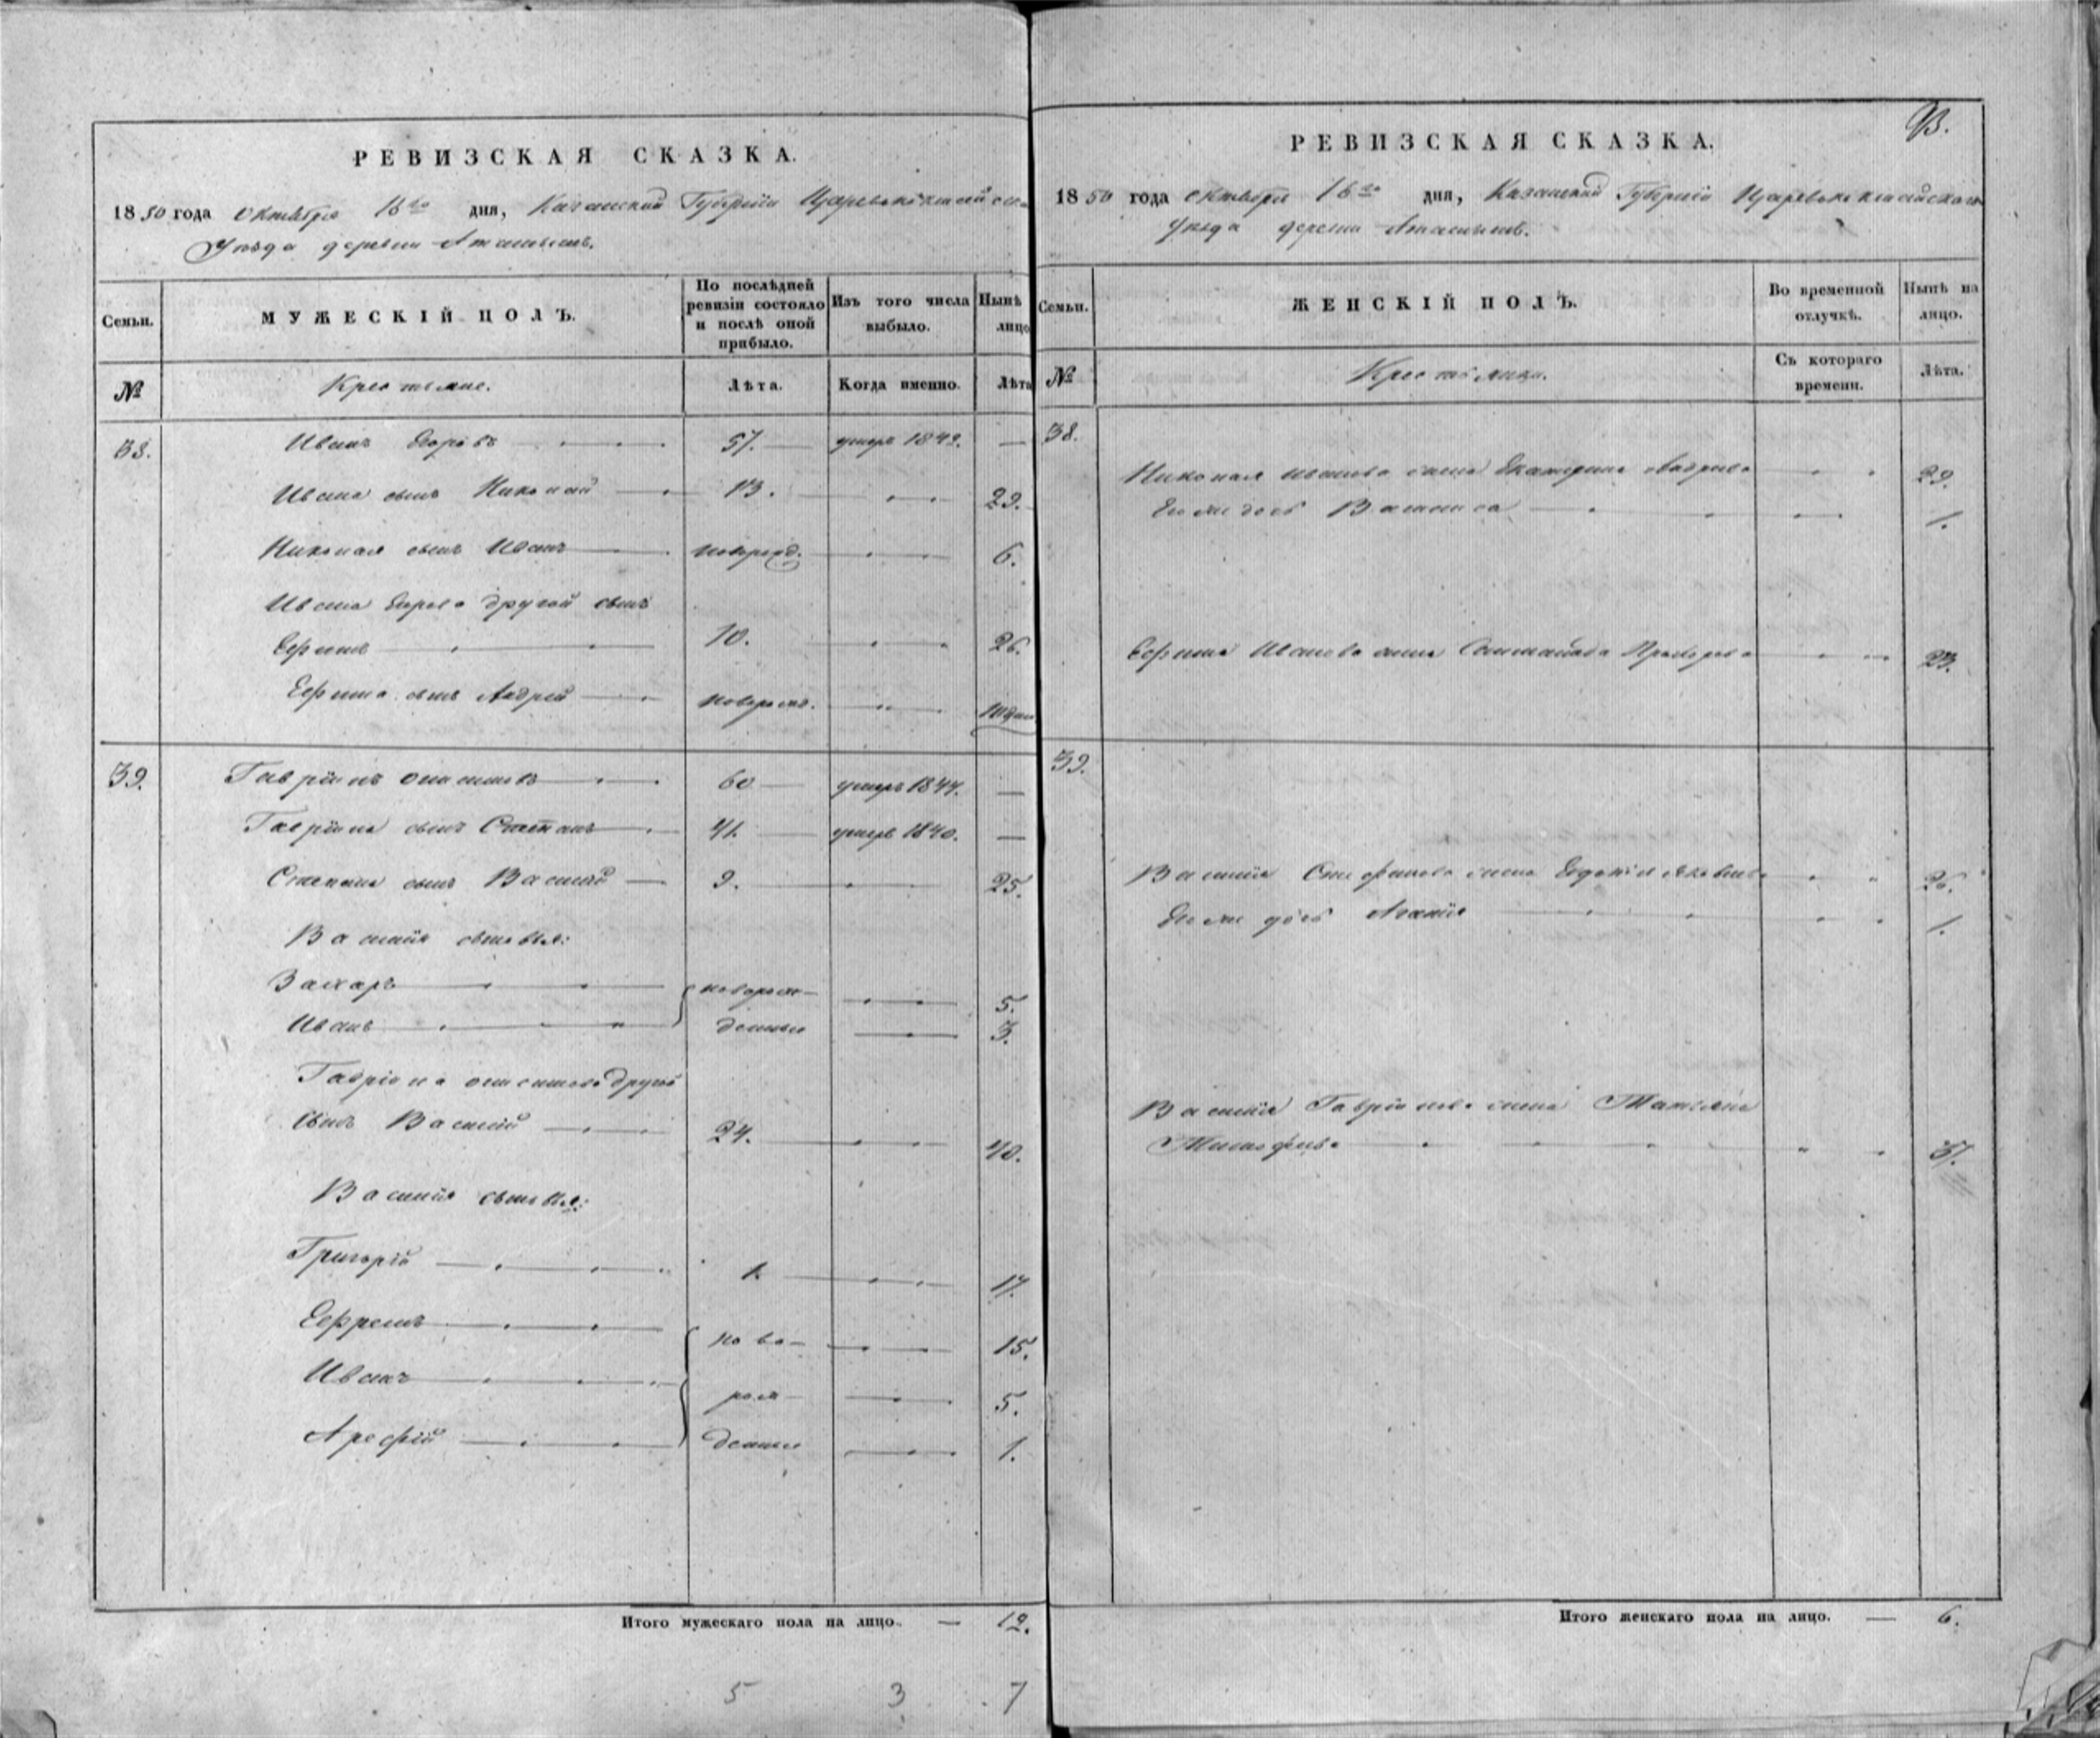 РЕВИЗСКАЯ СКАЗКА.
1850 года октября 16го дня, Казанской Губернiи Царевококшайскаго
Уѣзда деревни
Семьи.
МУЖЕСКIЙ ПОЛЪ.
По послѣдней ревизiи состояло и послѣ оной прибыло.
Изъ того числа выбыло.
Нынѣ лицо
№
Крестьяне.
Лѣта.
Когда именно.
Лѣта
38.
Иванъ Егоровъ 57. умеръ 1842. —
Ивана сынъ Николай 13. 29.
Николая сынъ Иванъ новорожд. 6.
Ивана Егорова другой сынъ
Ефимъ 10. 26.
Ефима сынъ Андрей новорожд.
39.
Гаврiилъ 60 умеръ 1844. —
Гаврiила сынъ Степанъ 41. умеръ 1840. —
Степана сынъ Василiй 9. 25.
Василiя сыновья:
Захаръ новорож- 5.
Иванъ денные 3.
Гаврiила другой
сынъ Василiй 24. 40.
Василiя сыновья:
Григорiй 1. 17.
Ефремъ ново- 15.
Иванъ рож- 5.
Арефiй денные 1.
Итого мужескаго пола на лицо. — 12.
5 3 7
93.
РЕВИЗСКАЯ СКАЗКА.
1850 года октября 16го дня, Казанской Губернiи Царевококшайскаго
Уѣзда деревни
Семьи.
ЖЕНСКIЙ ПОЛЪ.
Во временной отлучкѣ.
Нынѣ на лицо.
№
Крестьянки.
Съ котораго времени.
Лѣта.
38.
Николая Иванова жена Екатерина 29.
Ея же дочь Василиса 1.
Ефима Иванова жена 23.
39.
Василiя Стефанова жена Евдокiя Яковлева 26.
Ея же дочь 1.
Василiя Гаврiилова жена Татьяна
Тимофеева 37.
Итого женскаго пола на лицо. — 6.